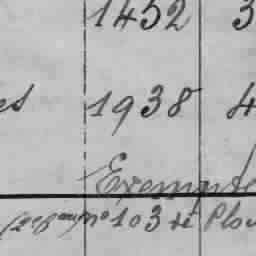 1452 3
es 1938 4
Exempte
nº 103 et Plou